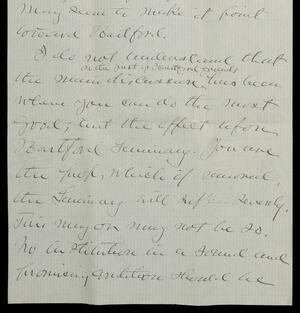 may seem to make it point
toward Hartford.
I do not understand that
on the part of Hartford friends
the main discussion, has been
where you can do the most
good, but the effect upon
Hartford Seminary. You are
the prop, which if removed,
the Seminary will suffer severely.
This may or may not be so.
No institution in a sound and
promising condition should be